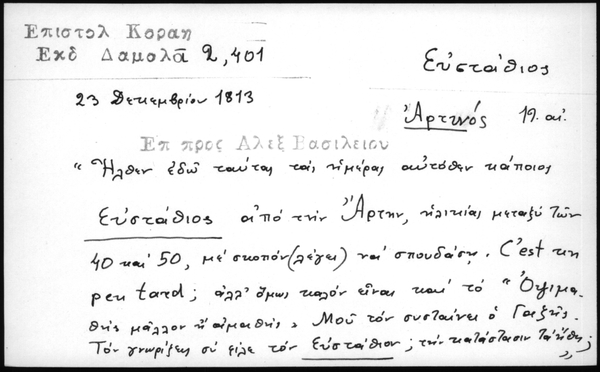 Επιστολ Κοραη
Εκδ Δαμολᾶ 2,401
Εὐστάθιος
23 Δεκεμβρίου 1813
Ἀρτινός 19. αἰ.
Επ προς Αλεξ Βασιλειου
"Ἦλθεν ἐδῶ ταύτας τὰς ἡμέρας αὐτόθεν κάποιος
Εὐστάθιος ἀπό τήν Ἄρτην, ἡλικίας μεταξύ τῶν
40 καί 50, μέ σκοπόν (λέγει) νά σπουδάσῃ. C'est un
peu tard; ἀλλ' ὅμως καλόν εἶναι καί τό "Ὀψιμα-
θής μᾶλλον ἤ ἀμαθής, Μοῦ τόν συσταίνει ὁ Γαζῆς.
Τόν γνωρίζεις σύ φίλε τόν Εὐστάθιον; τήν κατάστασιν τά ἤθη;